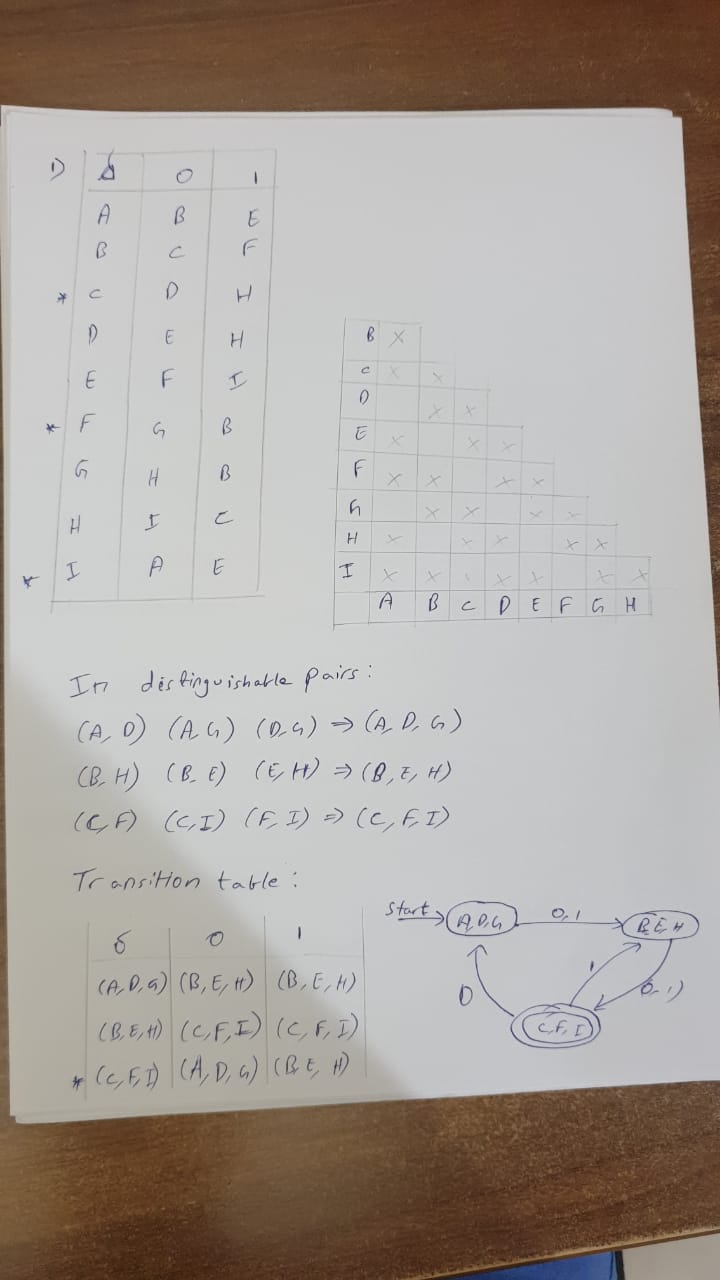 1) δ 0 1
A B E
B C F
* C D H
D E H
E F I
* F G B
G H B
H I C
* I A E
B X
C X X
D X X
E X X X
F X X X X
G X X X X
H X X X X X
I X X X X X X
A B C D E F G H
In distinguishable pairs:
(A, D) (A, G) (D, G) ⇒ (A, D, G)
(B, H) (B, E) (E, H) ⇒ (B, E, H)
(C, F) (C, I) (F, I) ⇒ (C, F, I)
Transition table:
δ 0 1
(A, D, G) (B, E, H) (B, E, H)
(B, E, H) (C, F, I) (C, F, I)
* (C, F, I) (A, D, G) (B, E, H)
Start A, D, G 0, 1 B, E, H
0 1 0, 1
C, F, I